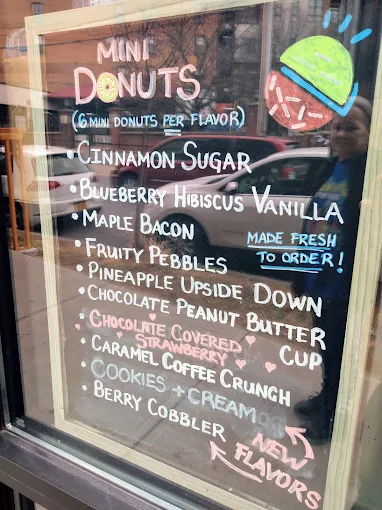 MINI
DONUTS
(6 MINI DONUTS PER FLAVOR)
• CINNAMON SUGAR
• BLUEBERRY HIBISCUS VANILLA
• MAPLE BACON
MADE FRESH
TO ORDER!
• FRUITY PEBBLES
• PINEAPPLE UPSIDE DOWN
• CHOCOLATE PEANUT BUTTER
CUP
• CHOCOLATE COVERED
STRAWBERRY
• CARAMEL COFFEE CRUNCH
• COOKIES + CREAM
• BERRY COBBLER
NEW
FLAVORS